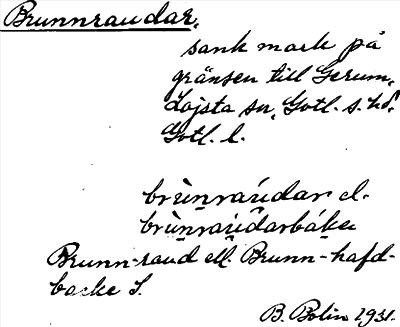 Brunnraudar,
sank mark på
gränsen till Gerum,
Lojsta sn, Gotl. s. hd.
Gotl. l.
brùnraúdar el.
brùnraúdarbákar
Brunn-raud ell. Brunn-hafd-
backe S.
B. Bolin 1931.